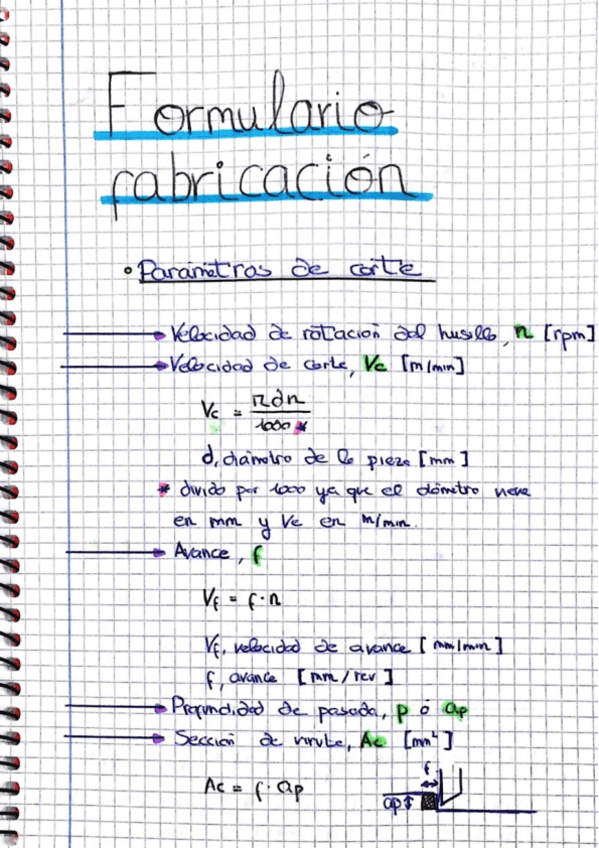 Formulario
fabricación
• Parámetros de corte
→ Velocidad de rotación del husillo, n [rpm]
→ Velocidad de corte, Vc [m/min]
Vc = πdn / 1000 *
d, diámetro de la pieza [mm]
* divido por 1000 ya que el diámetro viene
en mm y Vc en m/min.
→ Avance, f
Vf = f · n
Vf, velocidad de avance [mm/min]
f, avance [mm/rev]
→ Profundidad de pasada, p ó ap
→ Sección de viruta, Ac [mm²]
Ac = f · ap
f
ap